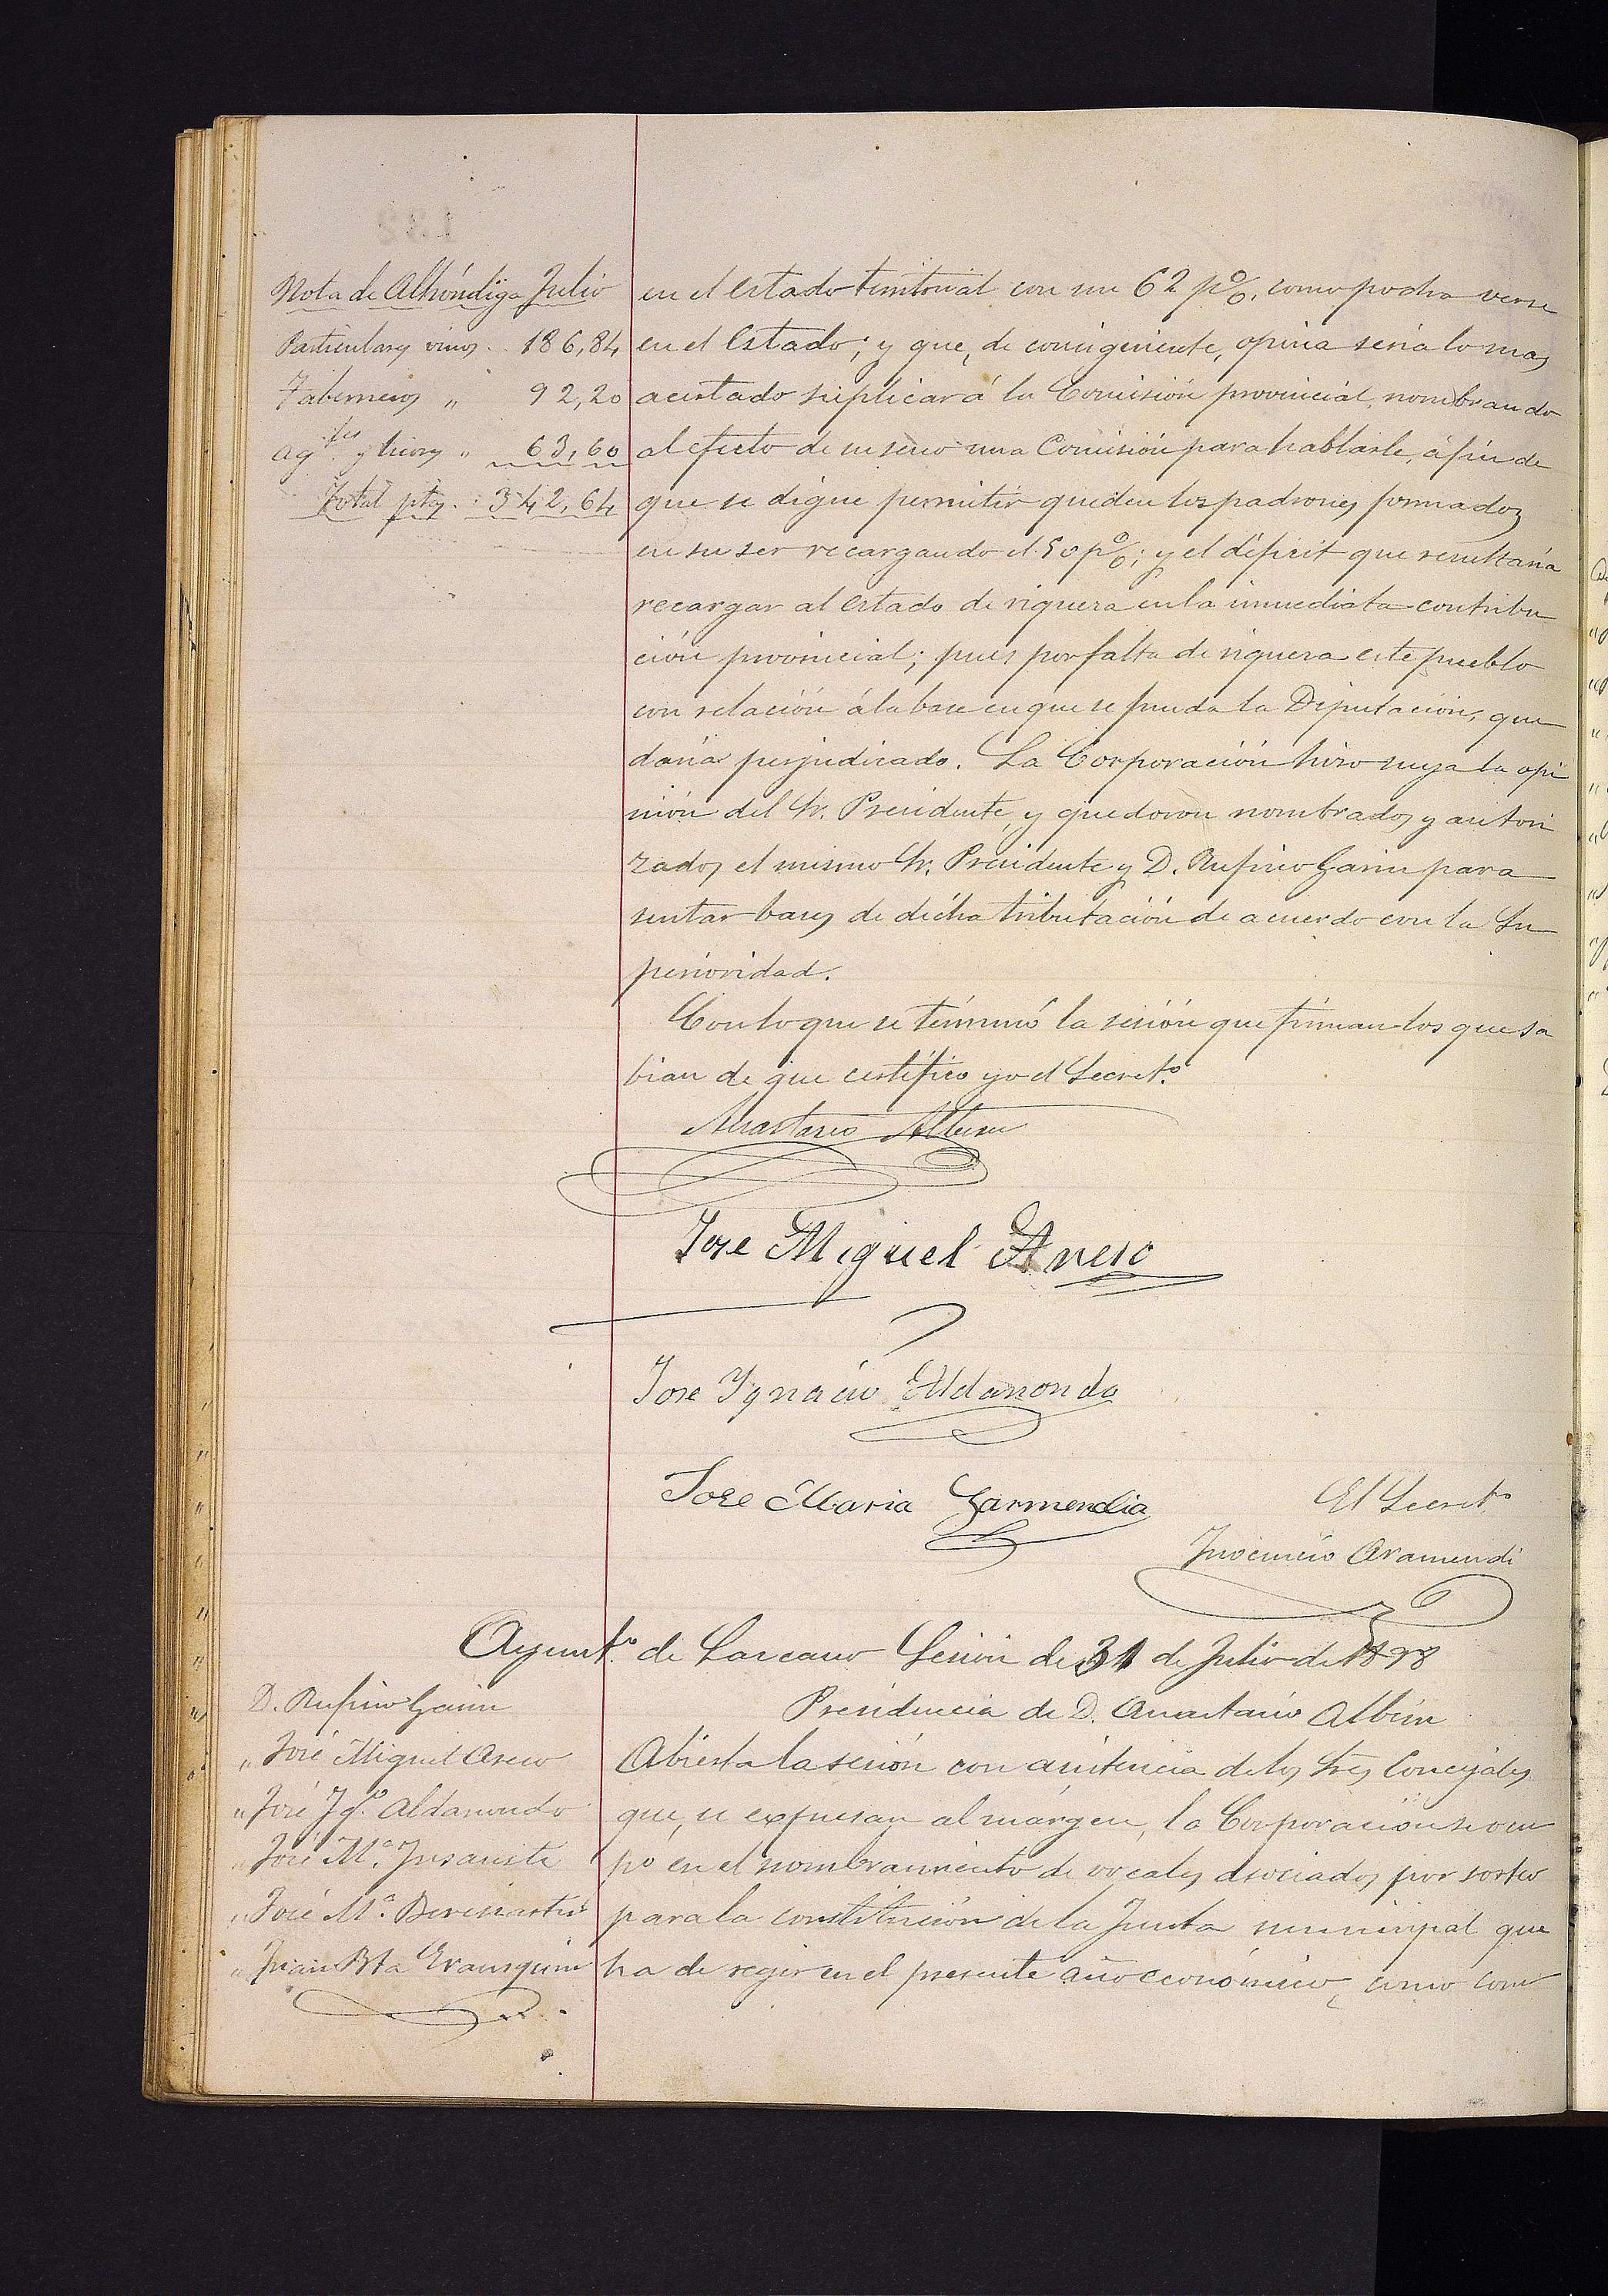 Nota de Alhóndiga Julio
Particulares vinos. 186,84
Taberneros " 92,20
Ag.tes y licores " 63,60
Total ptas. 342,64
en el estado territorial con un 62 p%, como podra verse
en el Estado; y que, de consiguiente, opina seria lo mas
acertado suplicar á la Comisión provincial, nombrando
al efecto de su seno una Comisión para hablarle, á fin de
que se digne permitir queden los padrones formados
en su ser recargando el 50 p%; y el déficit que resultaria
recargar al estado de riqueza en la inmediata contribu
ción provincial; pues por falta de riqueza este pueblo
con relación á la base en que se funda la Diputación, que
daria perjudicado. La Corporación hizo suya la opi
nión del Sr. Presidente, y quedaron nombrados y autori
zados el mismo Sr. Presidente y D. Rufino Garin para
sentar bases de dicha tributación de acuerdo con la Su
perioridad.
Con lo que se términó la sesión que firman los que sa
bian de que certifico yo el Secret.º
Anastasio Albisu
Jose Miguel Aseso
Jose Ygnacio Aldanondo
Jose Maria Garmendia
El Secret.º
Inocencio Aramendi
Ayunt.º de Lazcano Sesión de 31 de Julio de 1898
Presidencia de D. Anastasio Albisu
D. Rufino Garin
" José Miguel Aseso
" José Jg.º Aldanondo
" José M.ª Insausti
" José M.ª
" Juan Bta Erausquin
Abierta la sesión con asistencia de los Sres Concejales
que se expresan al márgen, la Corporación se ocu
pó en el nombramiento de vocales asociados por sorteo
para la constitución de la Junta municipal que
ha de regir en el presente año económico, como